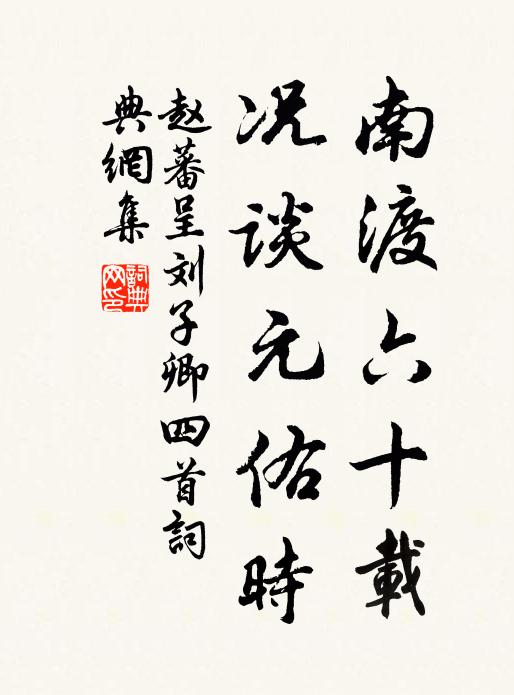 南渡六十載
况談元佑時
赵蕃呈刘子卿四首詞
典網集
詞典
网印